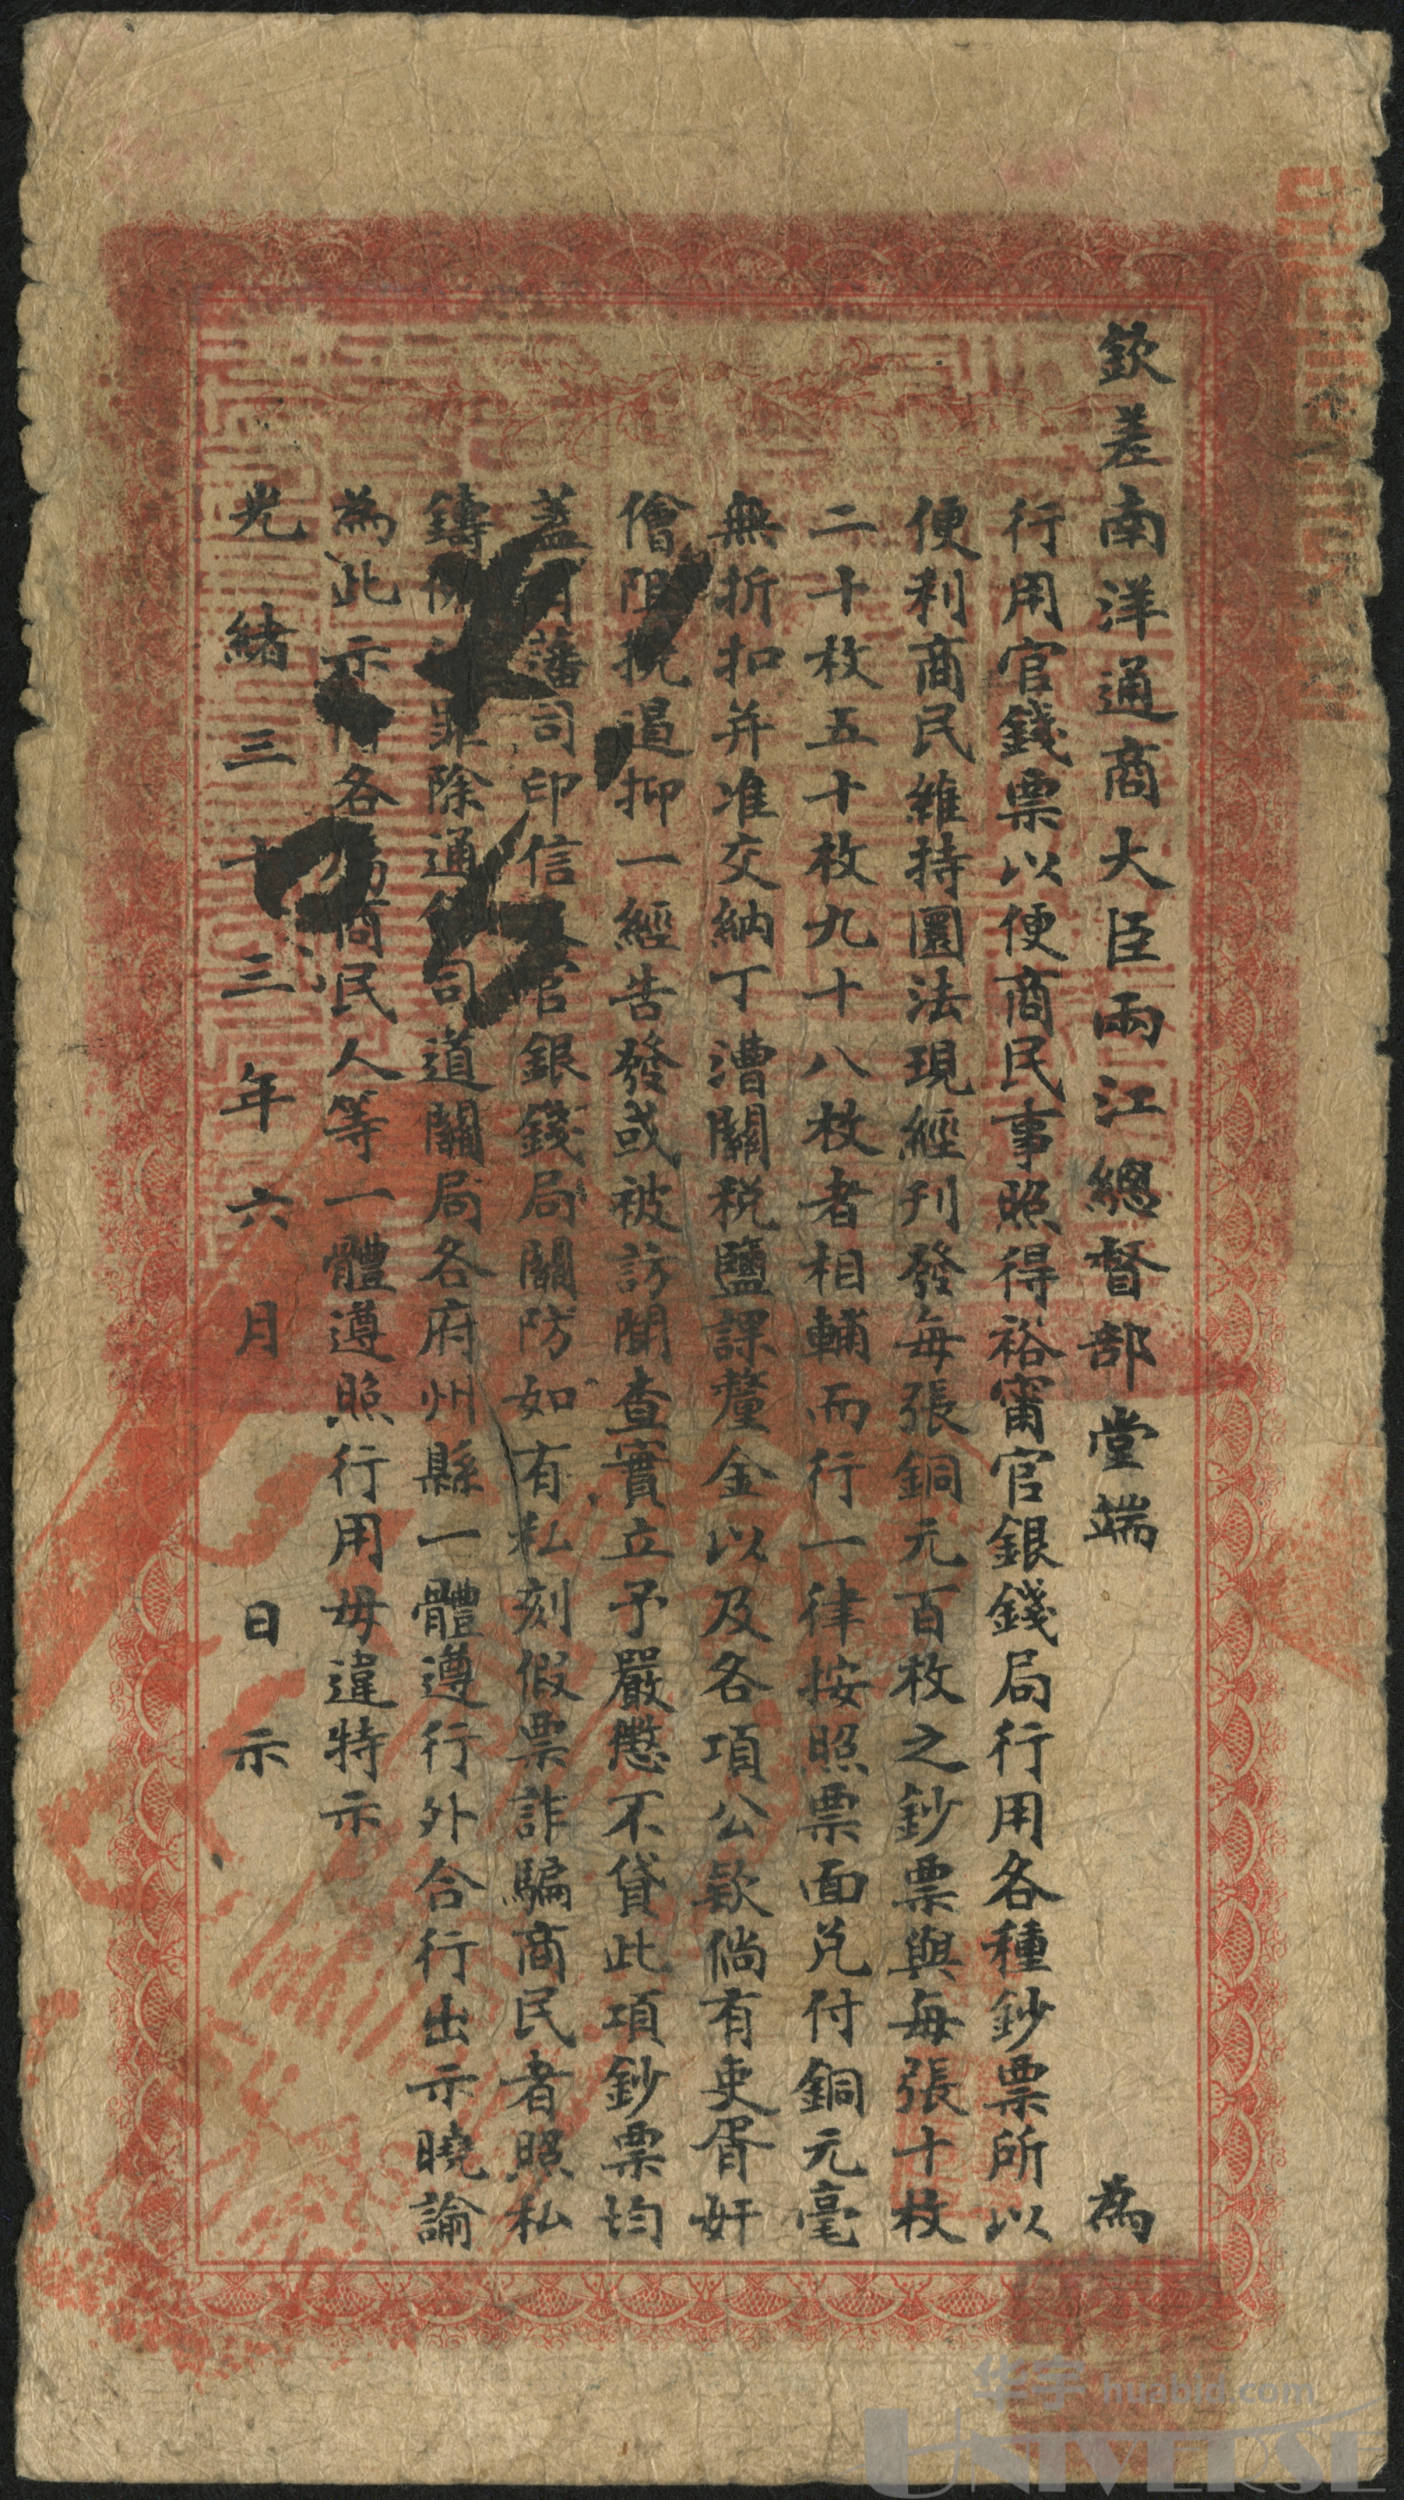 欽差南洋通商大臣兩江總督部堂端 為
行用官錢票以便商民事照得裕甯官銀錢局行用各種鈔票所以
便利商民維持圜法現經刊發每張銅元百枚之鈔票與每張十枚
二十枚五十枚九十八枚者相輔而行一律按照票面兌付銅元毫
無折扣并准交納丁漕關稅鹽課釐金以及各項公款倘有吏胥奸
儈阻撓逼抑一經告發或被訪聞查實立予嚴懲不貸此項鈔票均
蓋用藩司印信官銀錢局關防如有私刻假票詐騙商民者照私
鑄罪除通飭司道關局各府州縣一體遵行外合行出示曉諭
為此示各商民人等一體遵照行用毋違特示
光緒三十三年六月 日示
华宇 huabid.com
UNIVERSE